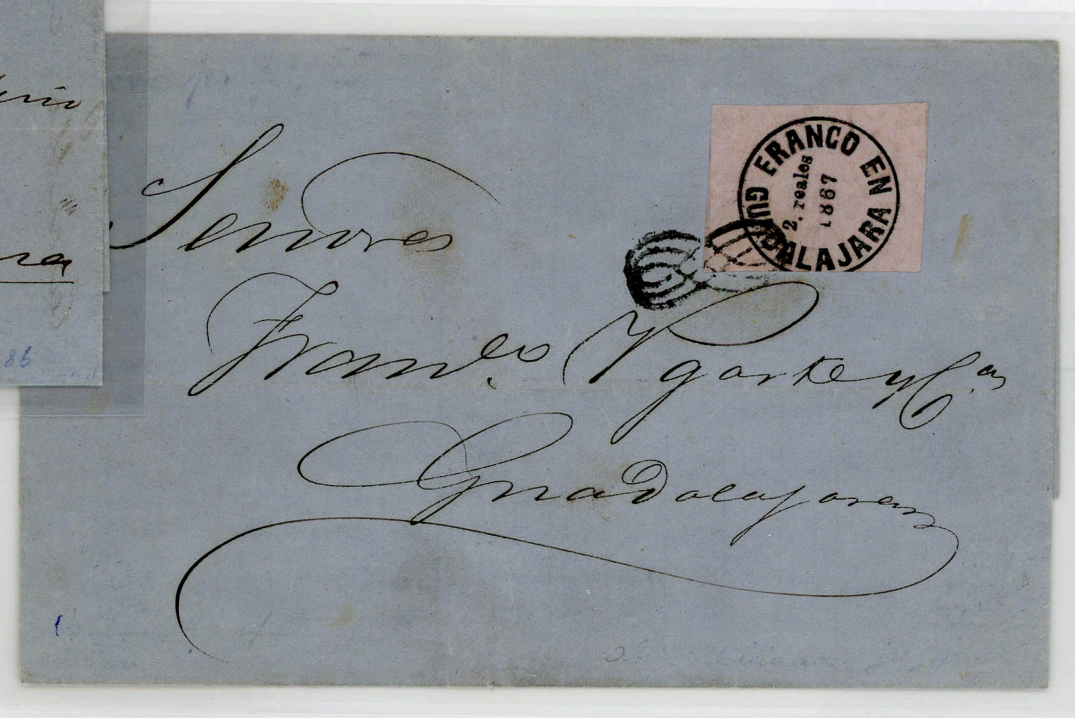 FRANCO EN GUADALAJARA
2. reales
1867
Señores
Franco. Ygarte y Ca.
Guadalajara
86